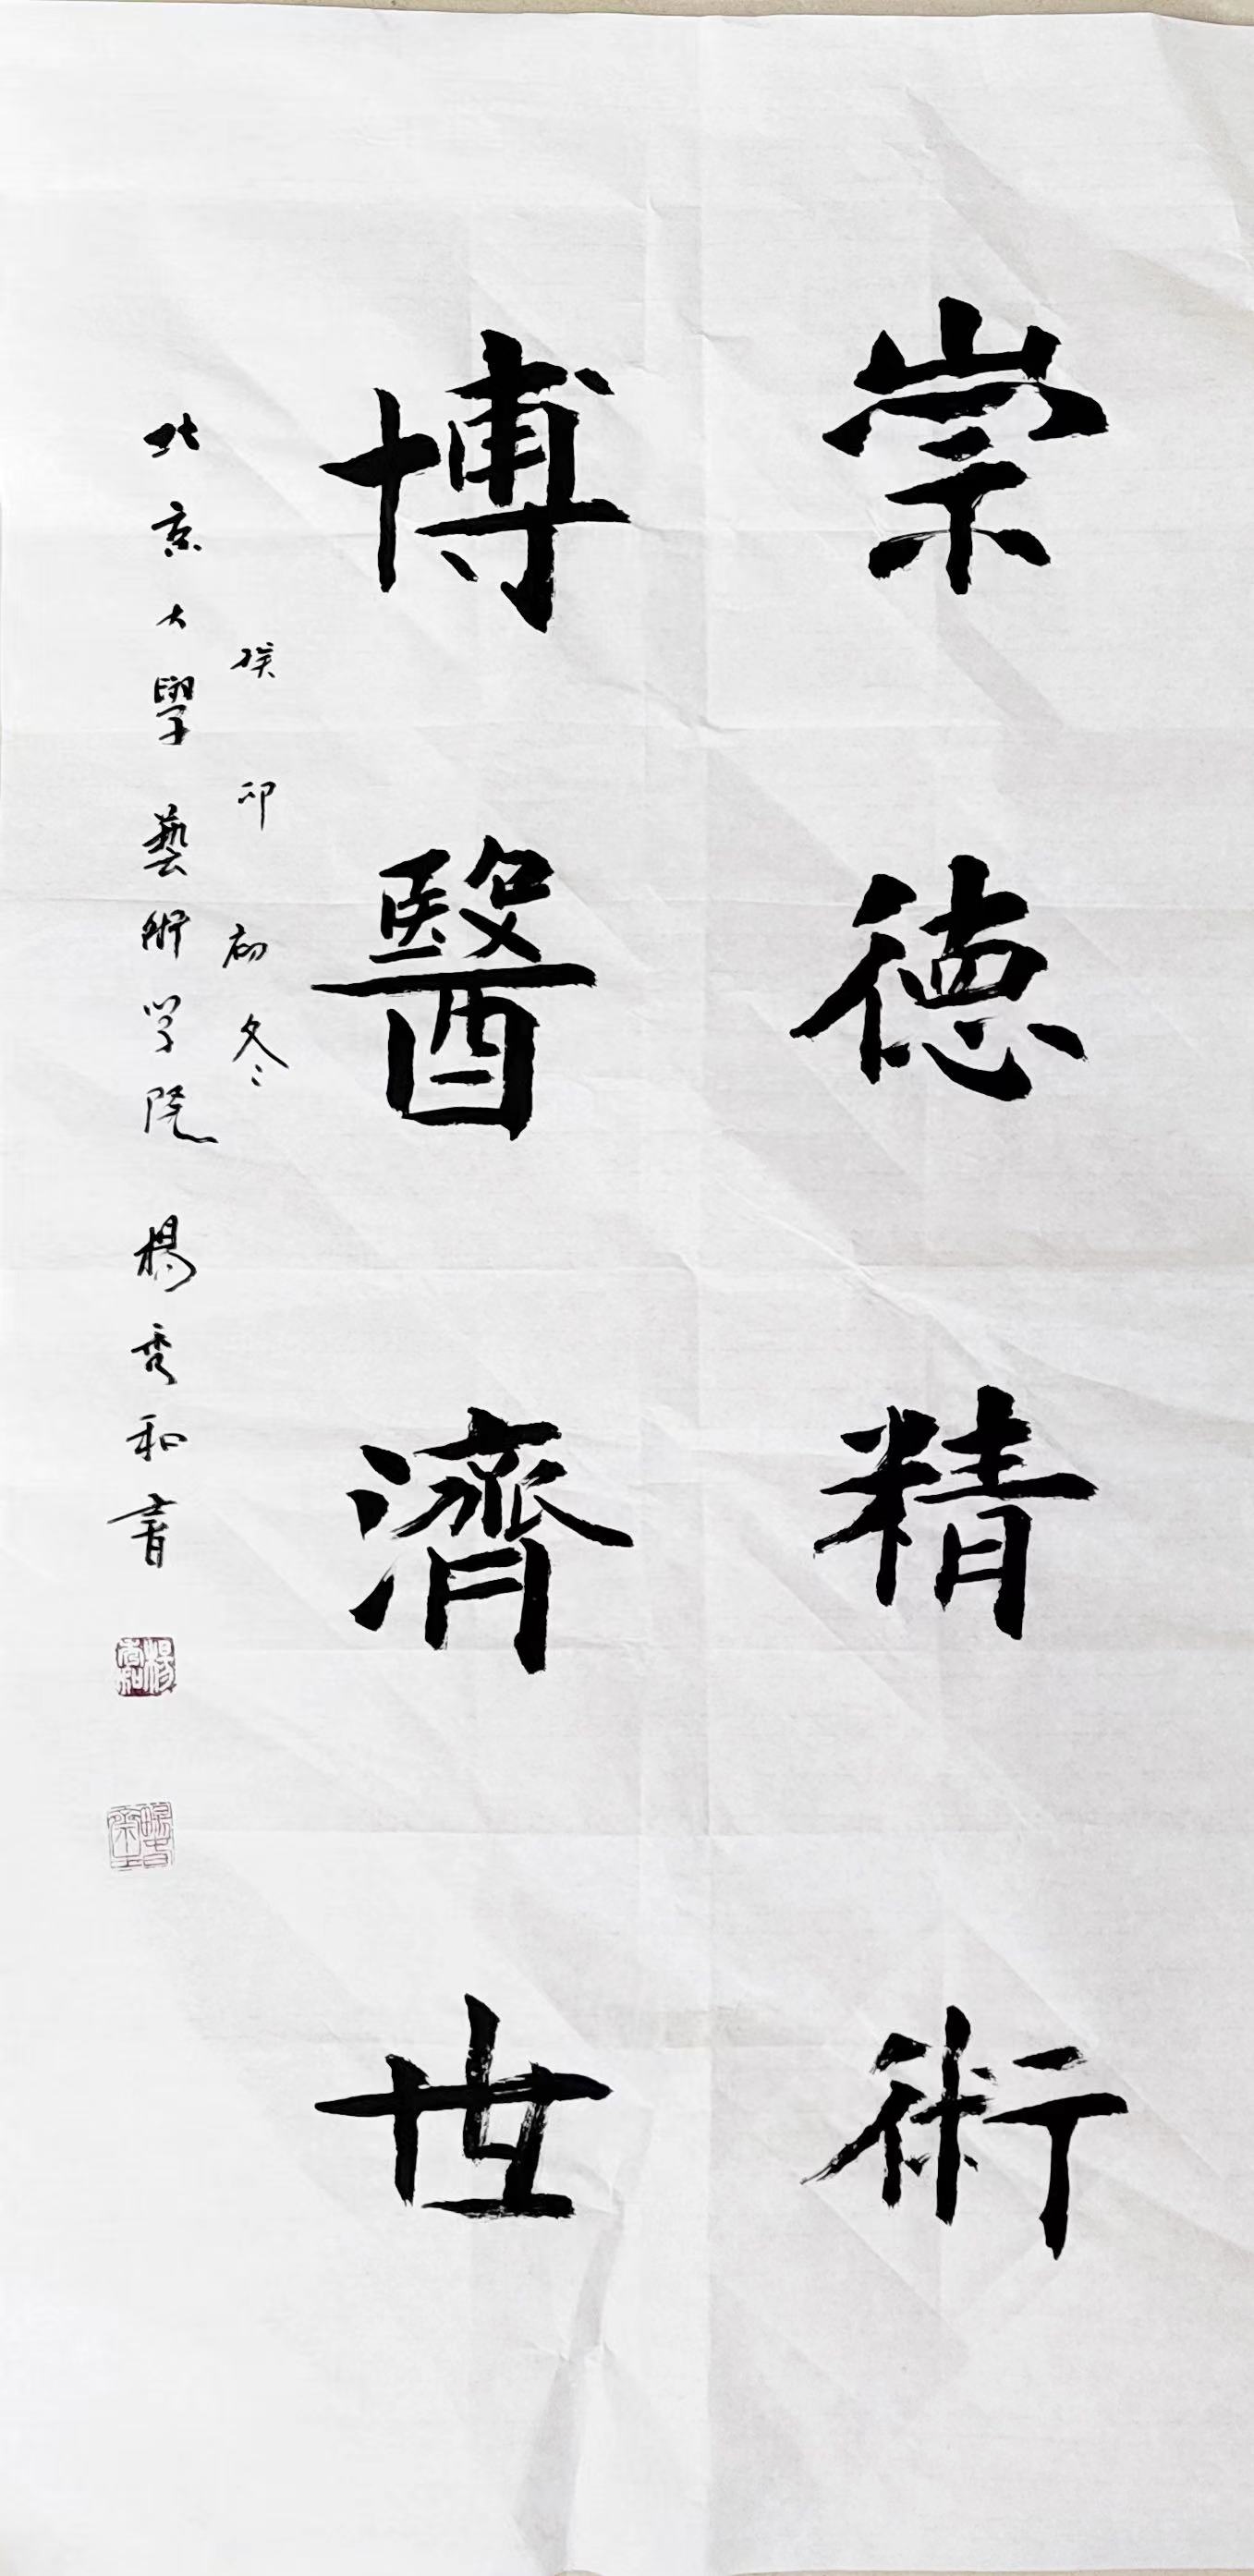 崇德精術
博醫濟世
癸卯初冬
北京大學藝術学院 楊秀和書